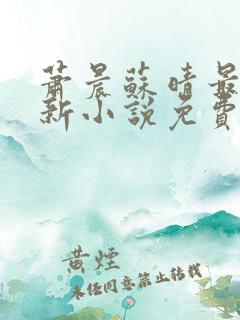 蕭晨蘇晴最
新小說免費
黃煙
未經同意禁止轉載